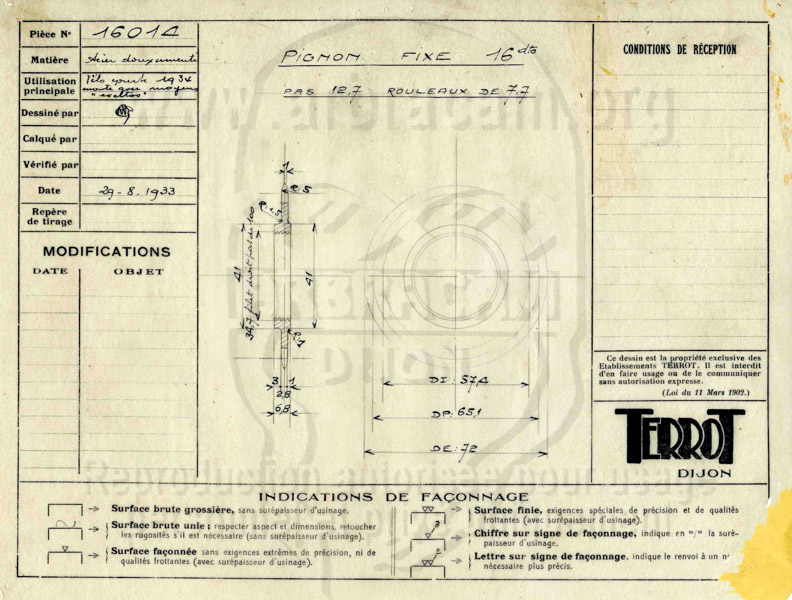 Pièce N° 16014
Matière Acier doux cimenté
Utilisation principale Vélo course 1934
Dessiné par
Calqué par
Vérifié par
Date 29-8-1933
Repère de tirage
MODIFICATIONS
DATE OBJET
PIGNON FIXE 16 dts
PAS 12,7 ROULEAUX DE 7,7
1
R. 5
41
34,7 filet droit pas de 100
41
3 1
2,8
6,8
DI : 57,4
DP : 65,1
DE : 72
CONDITIONS DE RÉCEPTION
Ce dessin est la propriété exclusive des
Etablissements TERROT. Il est interdit
d'en faire usage ou de le communiquer
sans autorisation expresse.
(Loi du 11 Mars 1902.)
TERROT
DIJON
INDICATIONS DE FAÇONNAGE
Surface brute grossière, sans surépaisseur d'usinage.
Surface brute unie ; respecter aspect et dimensions, retoucher
les rugosités s'il est nécessaire (sans surépaisseur d'usinage).
Surface façonnée sans exigences extrêmes de précision, ni de
qualités frottantes (avec surépaisseur d'usinage).
Surface finie, exigences spéciales de précision et de qualités
frottantes (avec surépaisseur d'usinage).
2
Chiffre sur signe de façonnage, indique en m/m la suré-
paisseur d'usinage.
Lettre sur signe de façonnage, indique le renvoi à un
nécessaire plus précis.
www.arbracam.org
ARBRACAM
DIJON
Reproduction autorisée pour usage